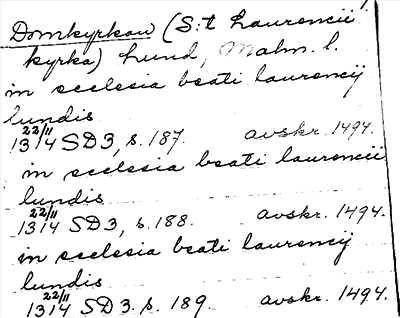 Domkyrkan (S:t Laurencii
kyrka) Lund, Malm. l.
in ecclesia beati laurencij
lundis
22/11
1314 SD3, s. 187. avskr. 1494.
in ecclesia beati laurencii
lundis
22/11
1314 SD3, s. 188. avskr. 1494.
in ecclesia beati laurencij
lundis
22/11
1314 SD3. s. 189. avskr. 1494.